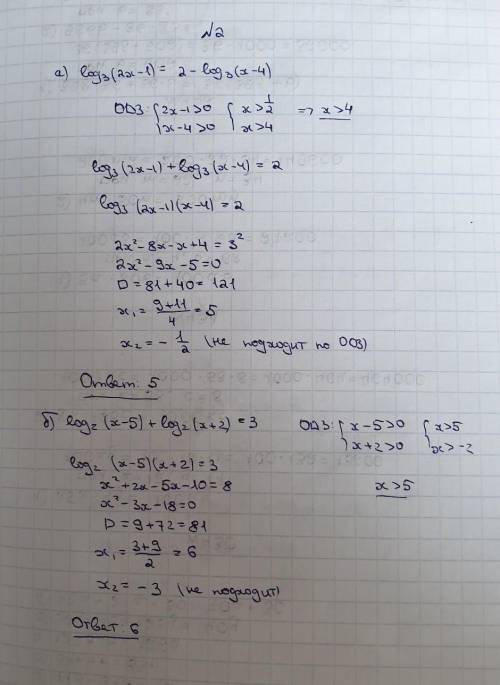 №2
а) log₃(2x-1) = 2 - log₃(x-4)
ОДЗ: { 2x-1>0 { x>1/2 => x>4
x-4>0 x>4
log₃(2x-1)+log₃(x-4) = 2
log₃(2x-1)(x-4) = 2
2x²-8x-x+4 = 3²
2x²-9x-5=0
D = 81+40 = 121
x₁ = (9+11)/4 = 5
x₂ = -1/2 (не подходит по ОДЗ)
Ответ: 5
б) log₂(x-5)+log₂(x+2) = 3 ОДЗ: { x-5>0 { x>5
x+2>0 x>-2
log₂(x-5)(x+2) = 3
x²+2x-5x-10 = 8 x>5
x²-3x-18=0
D = 9+72 = 81
x₁ = (3+9)/2 = 6
x₂ = -3 (не подходит)
Ответ: 6